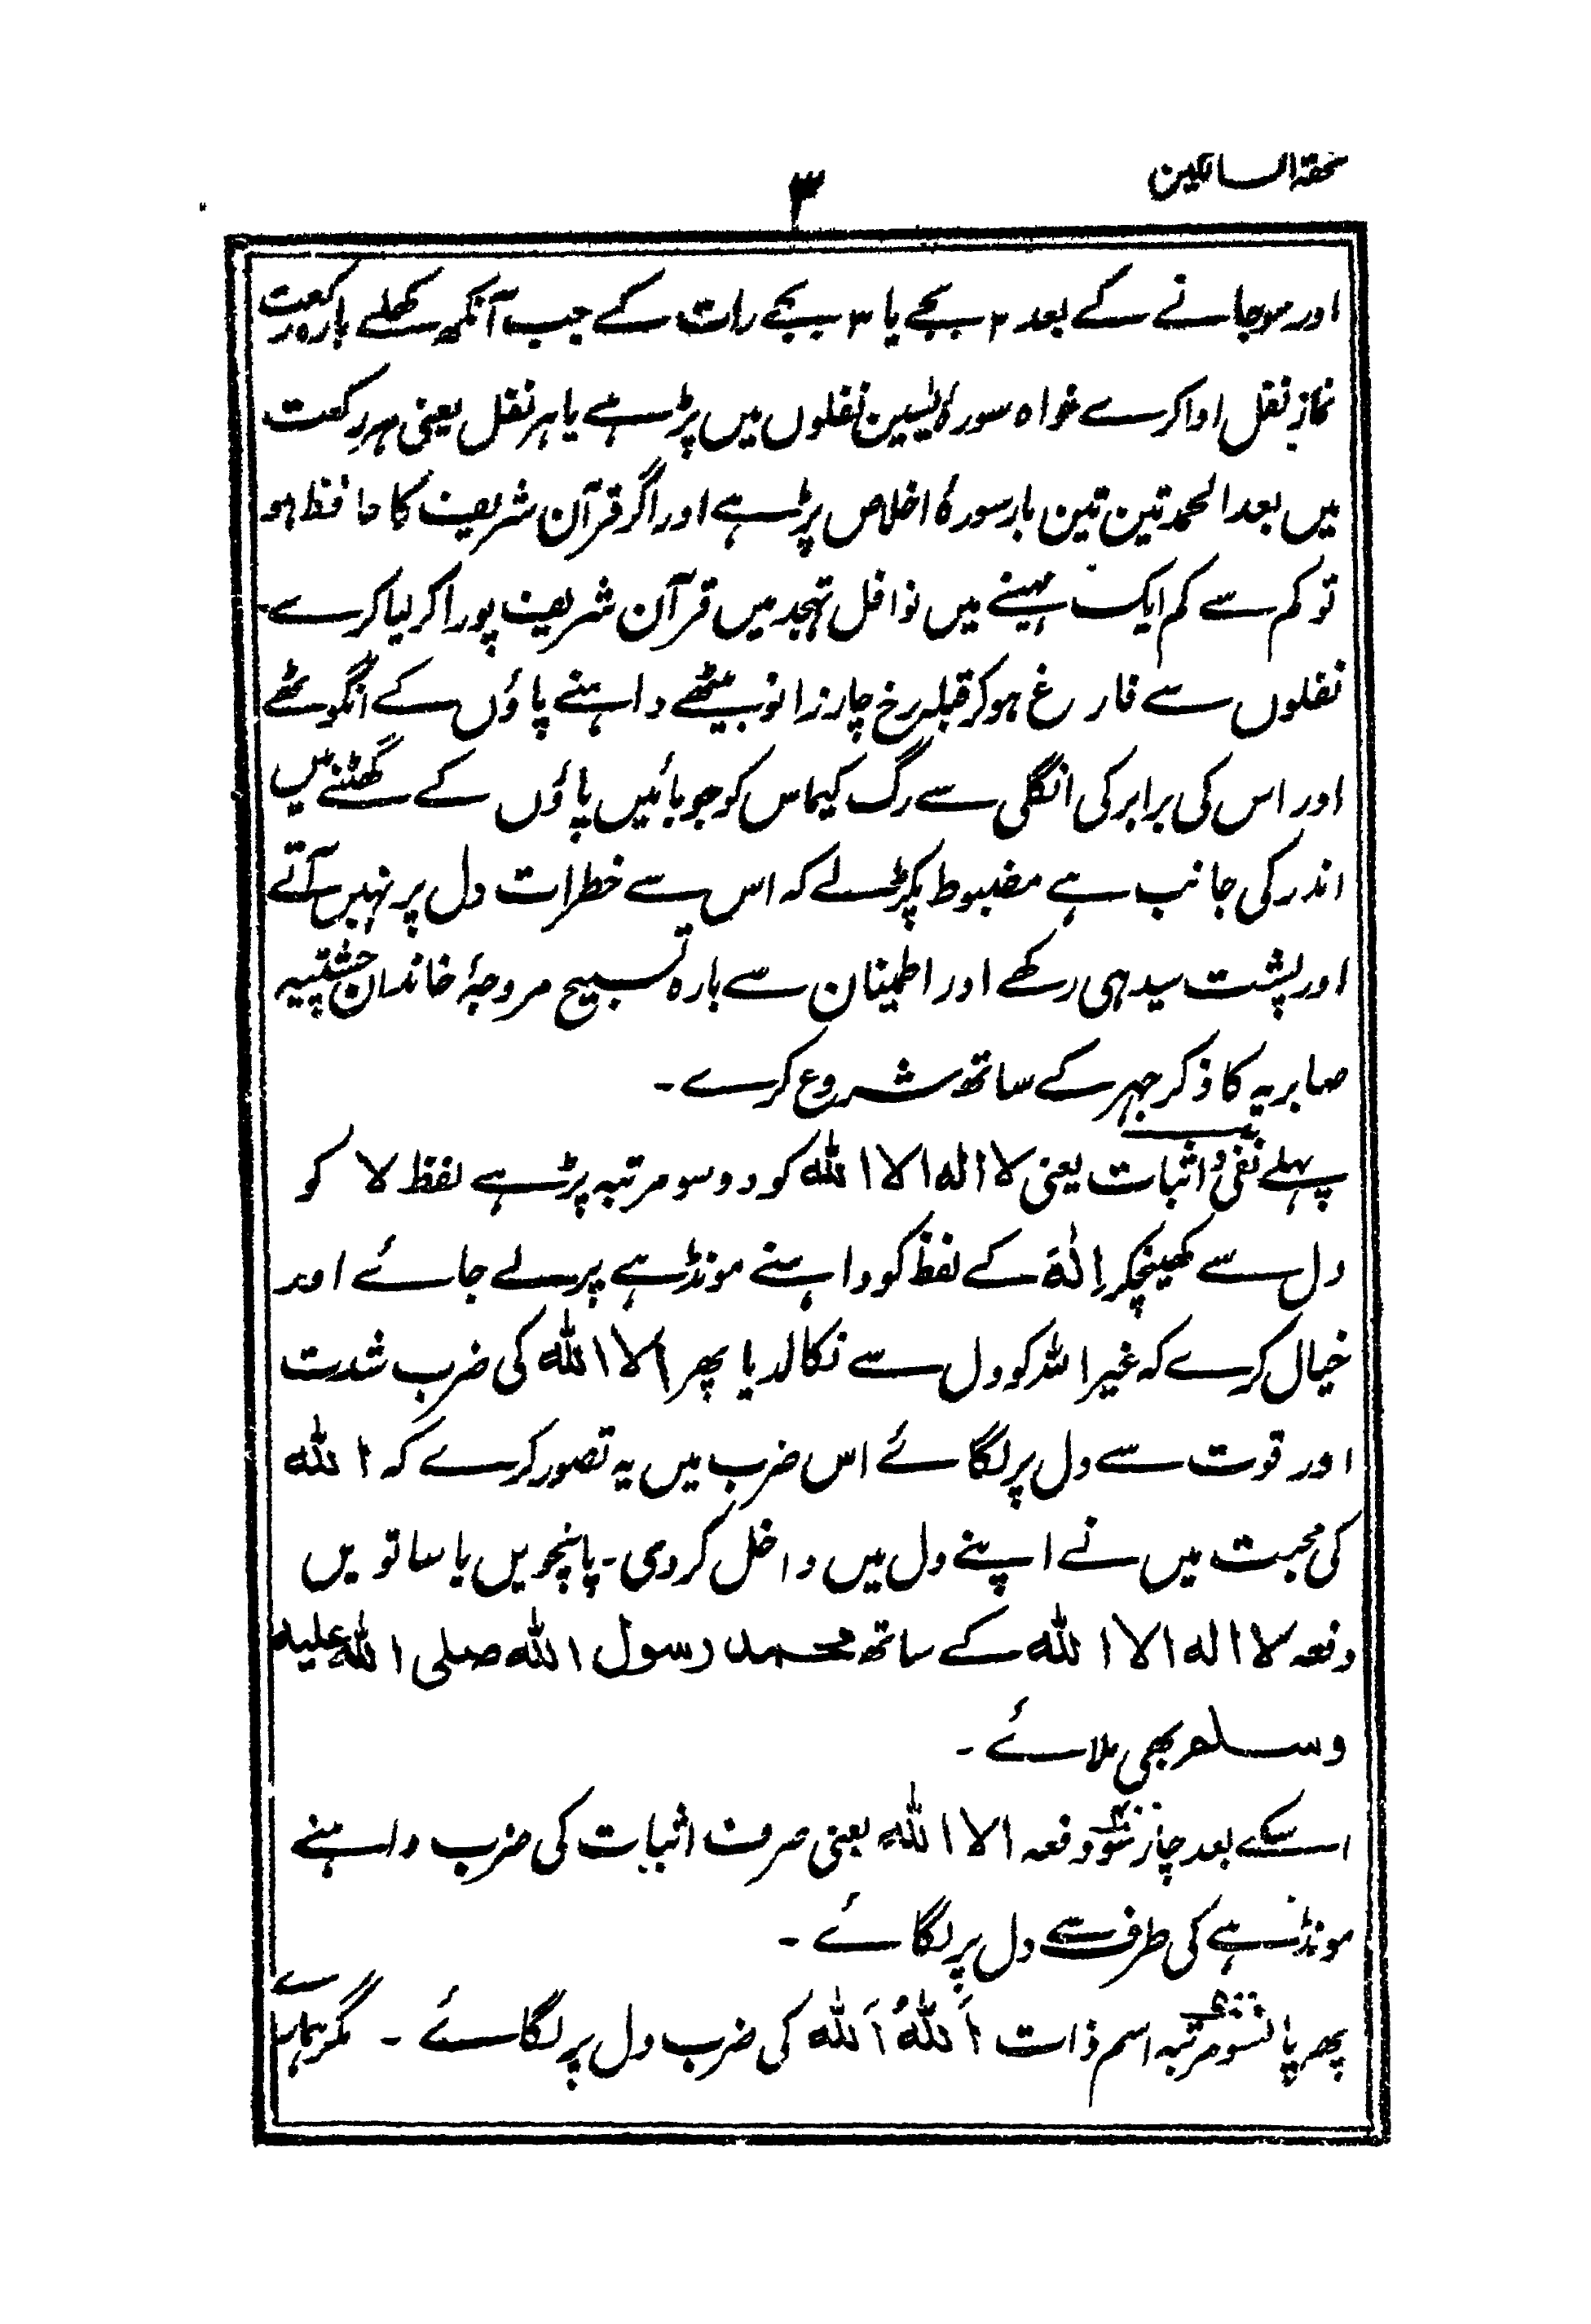 تحفۃ السالکین
۳
اور سوجانے کے بعد ۲ بجے یا ۳ بجے رات کے جب آنکھ کھلے بارہ رکعت
نماز نفل ادا کرے خواہ سورۂ یٰسین نفلوں میں پڑہے یا ہر نفل یعنی ہر رکعت
میں بعد الحمد تین تین بار سورۂ اخلاص پڑہے اور اگر قرآن شریف کا حافظ ہو
تو کم سے کم ایک مہینے میں نوافل تہجد میں قرآن شریف پورا کر لیا کرے۔
نفلوں سے فارغ ہو کر قبلہ رخ چار زانو بیٹھے داہنے پاؤں کے انگوٹھے
اور اس کی برابر کی انگلی سے رگ کیماس کو جو بائیں پاؤں کے گھٹنے میں
اندر کی جانب ہے مضبوط پکڑ لے کہ اس سے خطرات دل پر نہیں آتے
اور پشت سیدہی رکھے اور اطمینان سے بارہ تسبیح مروجۂ خاندان چشتیہ
صابریہ کا ذکر جہر کے ساتھ شروع کرے۔
پہلے نفی و اثبات یعنی لا الہ الا اللہ کو دو سو مرتبہ پڑہے لفظ لا کو
دل سے کھینچکر اِلٰہَ کے لفظ کو داہنے مونڈہے پر لے جائے اور
خیال کرے کہ غیر اللہ کو دل سے نکالدیا پھر الا اللہ کی ضرب شدت
اور قوت سے دل پر لگائے اس ضرب میں یہ تصور کرے کہ اللہ
کی محبت میں نے اپنے دل میں داخل کر دی۔ پانچویں یا ساتویں
دفعہ لا الہ الا اللہ کے ساتھ محمد رسول اللہ صلی اللہ علیہ
وسلم بھی ملائے۔
اسکے بعد چار سو ۴۰۰ دفعہ الا اللہ یعنی صرف اثبات کی ضرب داہنے
مونڈہے کی طرف سے دل پر لگائے۔
پھر پانسو ۵۰۰ مرتبہ اسم ذات اَللہُ اَللہ کی ضرب دل پر لگائے۔ مگر ہمارے